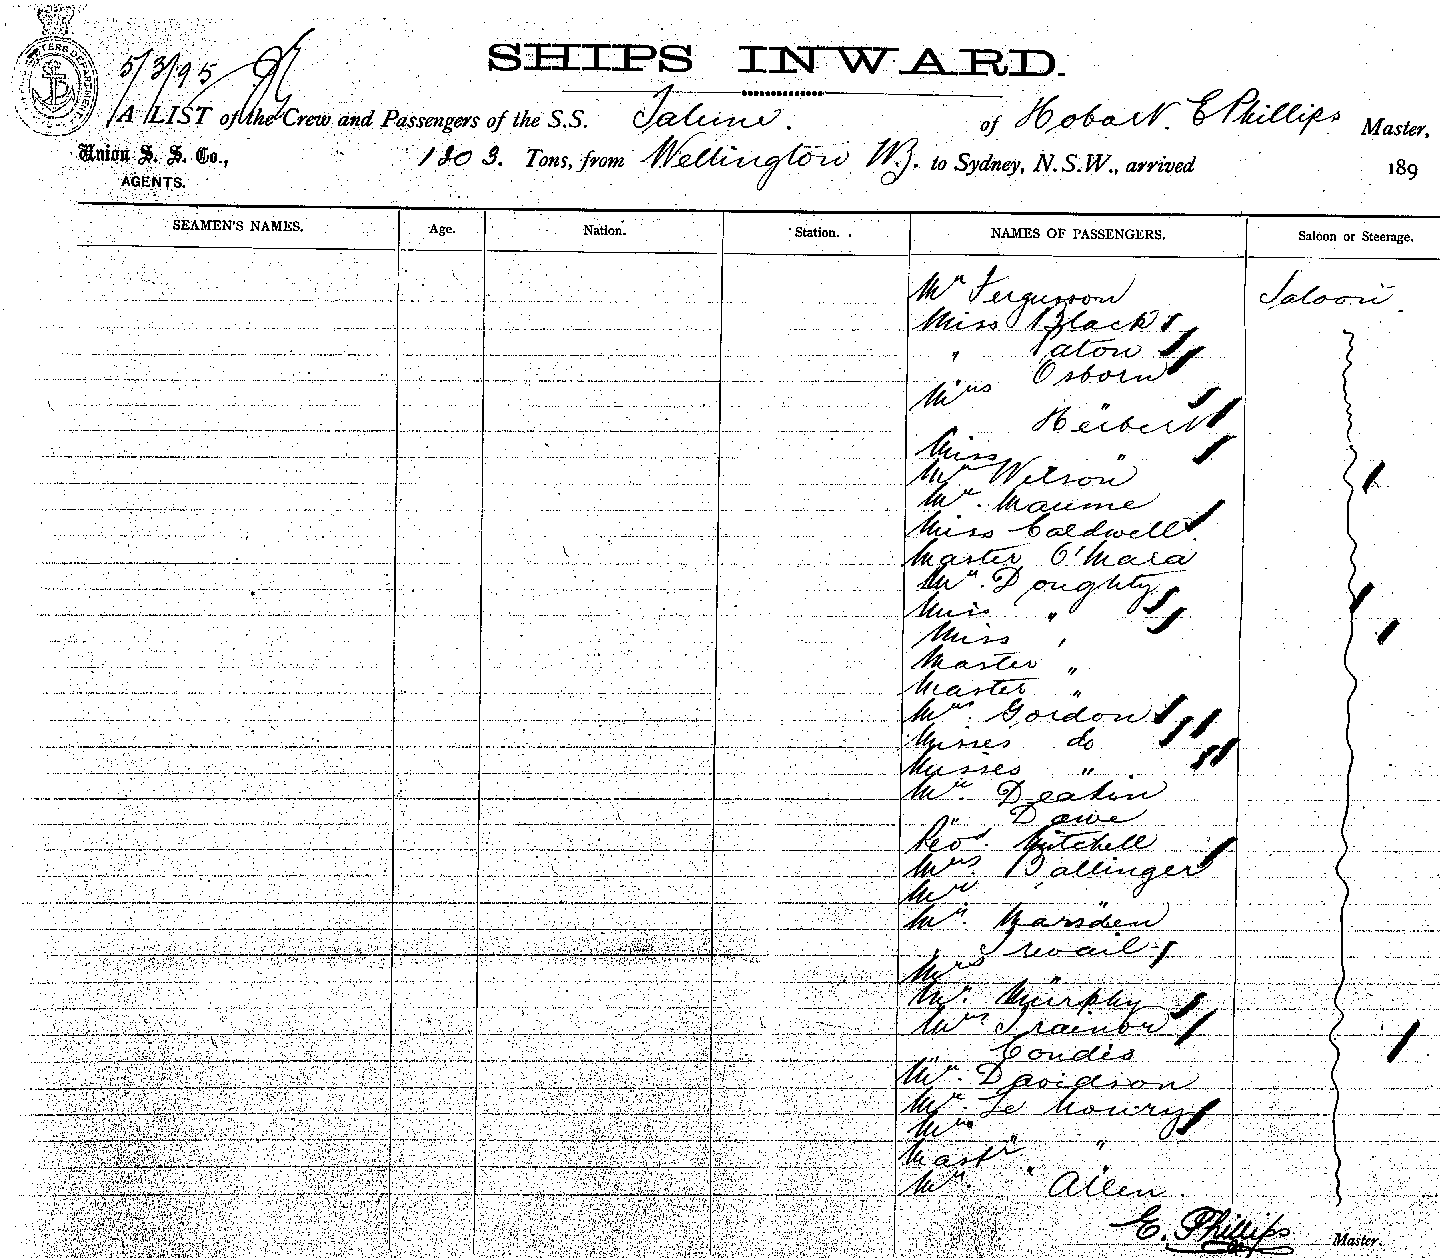 5/3/95
SHIPS INWARD.
A LIST of the Crew and Passengers of the S.S. Talune. of Hobart. E Phillips Master,
Union S. S. Co.,
AGENTS.
1303. Tons, from Wellington N.Z. to Sydney, N.S.W., arrived 189
SEAMEN'S NAMES. Age. Nation. Station. NAMES OF PASSENGERS. Saloon or Steerage.
Mr Fergusson Saloon
Miss Black
" Paton
Mrs Osborn
Herbert
Miss "
Mr Wilson
Mr. Maume
Miss Caldwell
Master O'Mara
Mr. Doughty
Miss "
Miss "
Master "
Master "
Mrs. Gordon
Misses do
Misses "
Mr. Deakin
" Dawe
Revd. Mitchell
Mrs. Ballinger
Mr "
Mr. Marsden
" Trevail
Mrs "
Mr. Murphy
Mrs Trainor
Condes
Mr. Davidson
Mr. Le
Mrs "
Mastr "
Mr. Allen.
E. Phillips Master.